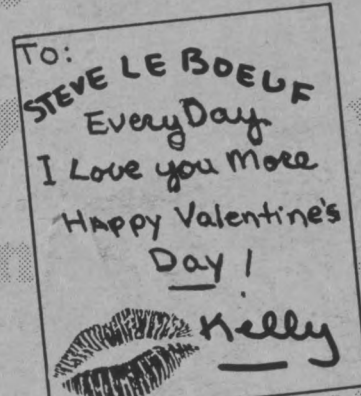 To:
STEVE LE BOEUF
Every Day
I Love you More
Happy Valentine's
Day!
Kelly